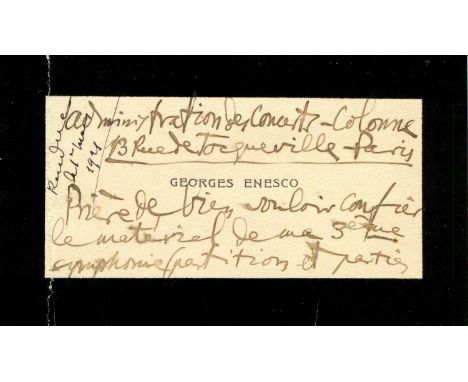 Administration des Concerts-Colonne
13 Rue de Tocqueville-Paris
GEORGES ENESCO
Prière de bien vouloir confier
le materiel de ma 3ème
symphonie, partition et parties
Rendue
1921